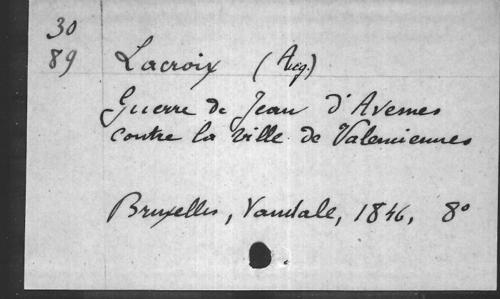 30
89 Lacroix (Aug.)
Guerre de Jean d'Avesnes
contre la ville de Valenciennes
Bruxelles, Vandale, 1846, 8°